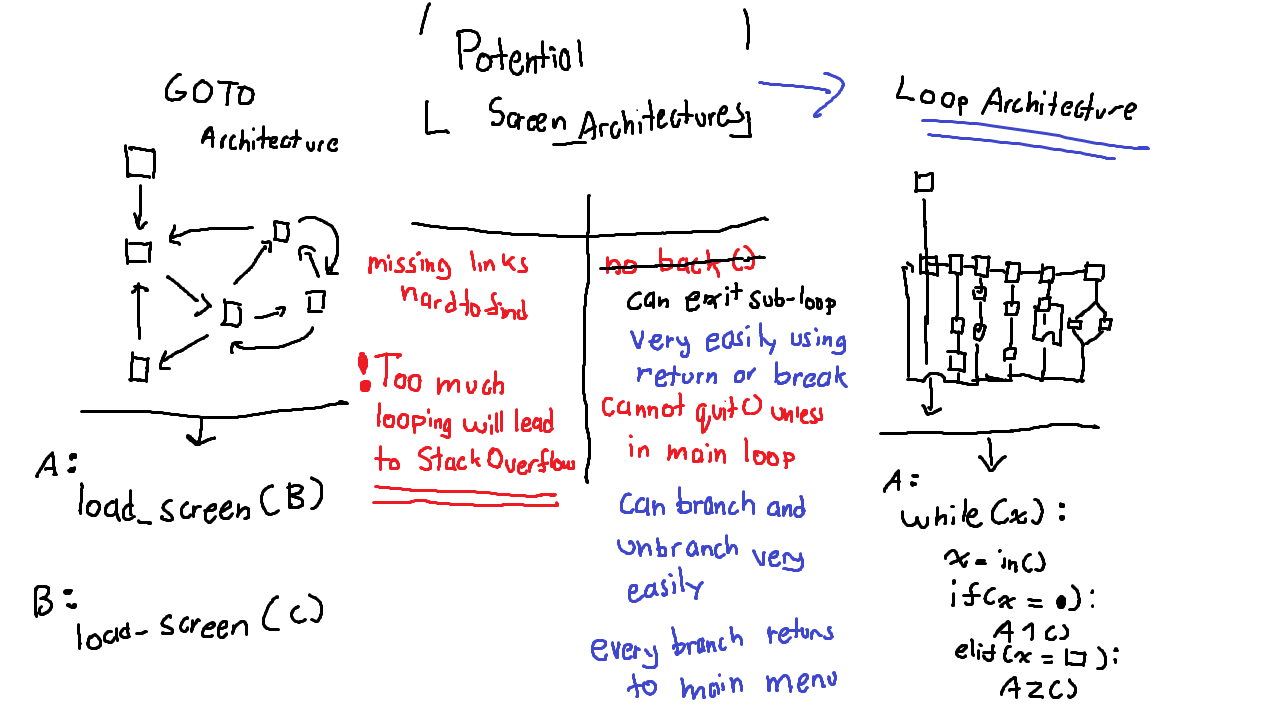 Potential
Screen Architectures
GOTO
Architecture
A:
load_screen(B)
B:
load-screen(C)
missing links
hard to find
! Too much
looping will lead
to Stack Overflow
no back()
can exit sub-loop
very easily using
return or break
cannot quit() unless
in main loop
can branch and
unbranch very
easily
every branch returns
to main menu
Loop Architecture
A:
while(x):
x = in()
if(x = •):
A1()
elif(x = □):
A2()